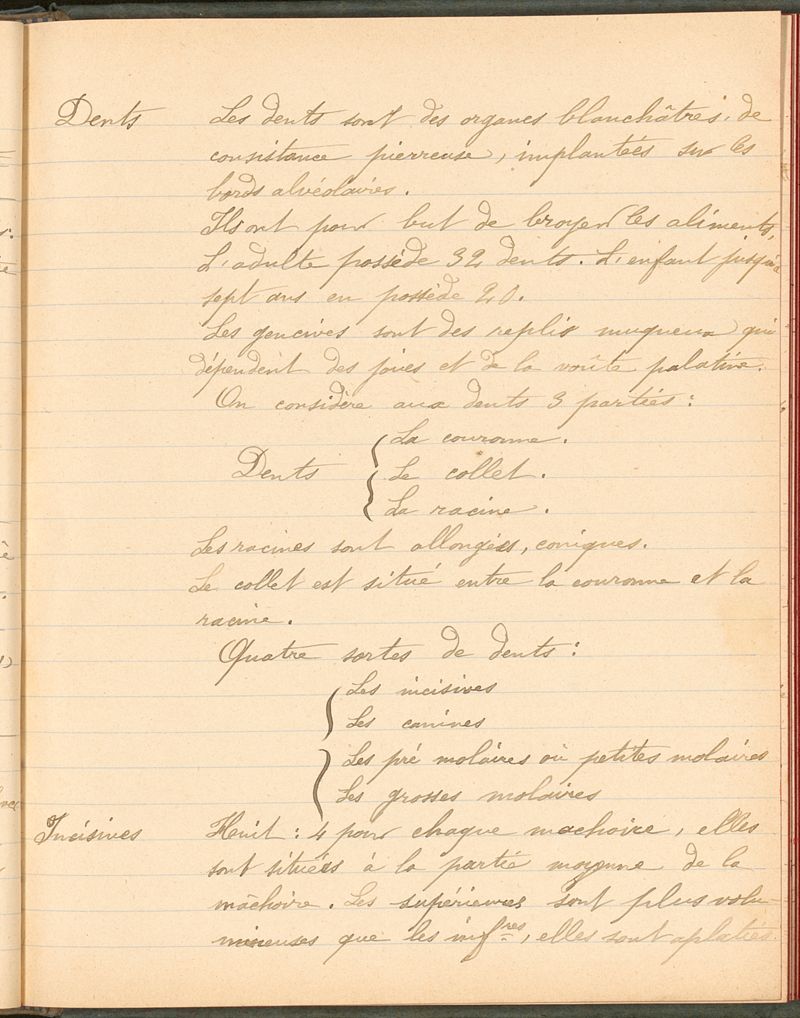 Dents Les dents sont des organes blanchâtres, de
consistance pierreuse, implantées sur les
bords alvéolaires.
Ils ont pour but de broyer les aliments,
L'adulte possède 32 dents. L'enfant jusqu'à
sept ans en possède 20.
Les gencives sont des replis muqueux qui
dépendent des joues et de la voûte palatine.
On considère aux dents 3 parties :
La couronne.
Dents Le collet.
La racine.
Les racines sont allongées, coniques.
Le collet est situé entre la couronne et la
racine.
Quatre sortes de dents :
Les incisives
Les canines
Les pré molaires ou petites molaires
Les grosses molaires
Incisives Huit : 4 pour chaque machoire, elles
sont situées à la partie moyenne de la
mâchoire. Les supérieures sont plus volu-
mineuses que les inf^res, elles sont aplaties